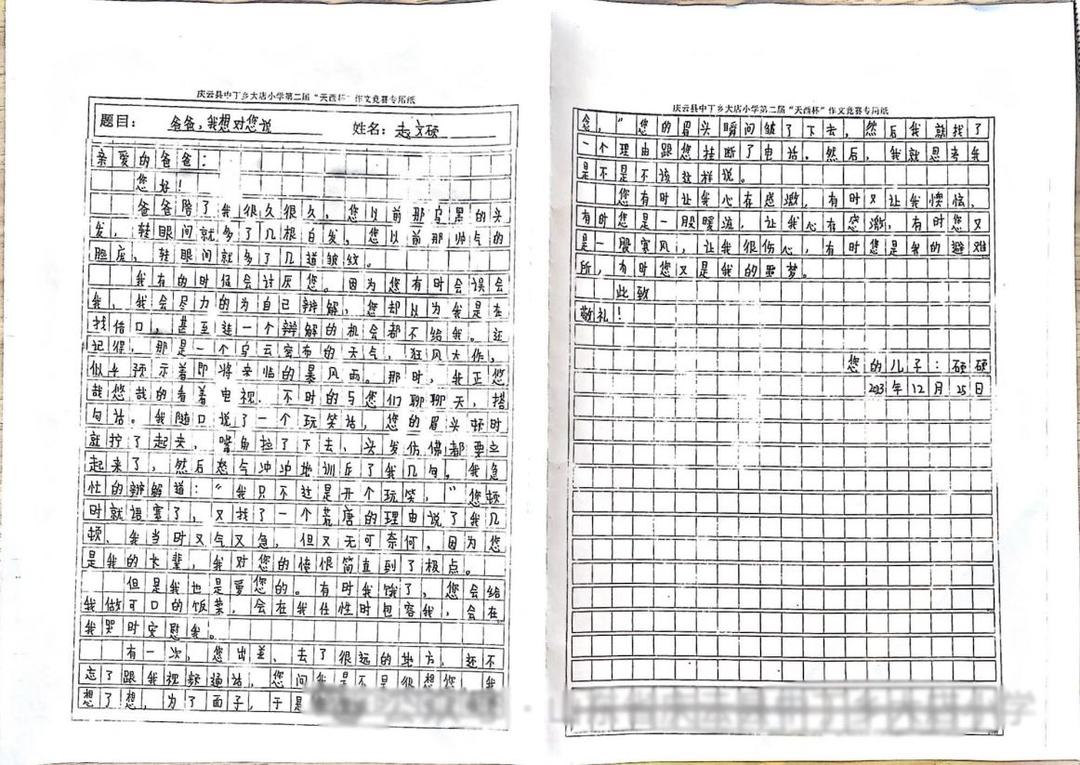 庆云县中丁乡大店小学第二届“天西杯”作文竞赛专用纸
题目： 爸爸，我想对您说 姓名：赵文硕
亲爱的爸爸：
您好！
爸爸陪了我很久很久，您以前那乌黑的头
发，鞋眼间就多了几根白发，您以前那帅气的
脸庞，鞋眼间就多了几道皱纹。
我有的时候会讨厌您。因为您有时会误会
我，我会尽力的为自己辨解，您却以为我是在
找借口，甚至连一个辩解的机会都不给我。还
记得，那是一个乌云密布的天气，狂风大作，
似乎预示着即将来临的暴风雨。那时，我正悠
哉悠哉的看着电视，不时的与您们聊聊天，搭
句话。我随口说了一个玩笑话，您的眉头顿时
就拧了起来，嘴角拉了下去，头发仿佛都要立
起来了，然后怒气冲冲地训斥了我几句。我急
忙的辨解道：“我只不过是开个玩笑，”您顿
时就语塞了，又找了一个荒唐的理由说了我几
顿、我当时又气又急，但又无可奈何，因为您
是我的长辈，我对您的憎恨简直到了极点。
但是我也是爱您的。有时我饿了，您会给
我做可口的饭菜，会在我任性时包容我，会在
我哭时安慰我。
有一次，您出差，去了很远的地方，还不
忘了跟我视频通话，您问我是不是很想您，我
想了想，为了面子，于是
庆云县中丁乡大店小学第二届“天西杯”作文竞赛专用纸
念，”您的眉头瞬间皱了下去，然后我就找了
一个理由跟您挂断了电话。然后，我就思考我
是不是不该这样说。
您有时让我心存感激，有时又让我懊恼，
有时您是一股暖流，让我心存感激，有时您又
是一股寒风，让我很伤心，有时您是我的避难
所，有时您又是我的噩梦。
此致
敬礼！
您的儿子：硕硕
2023年12月25日